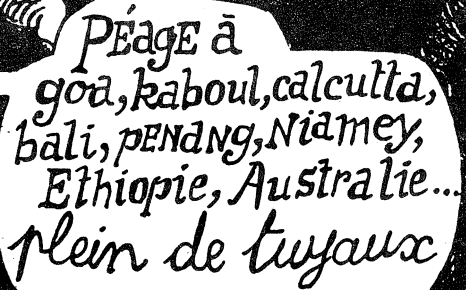 PÉagE ā
goa, kaboul, calcutta,
bali, pENdNg, Niamey,
Ethiopie, Australie...
plein de tuyaux